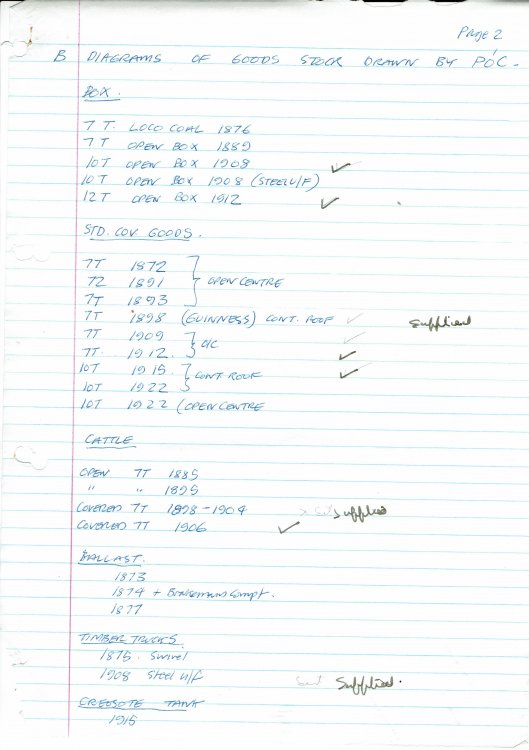 Page 2
B DIAGRAMS OF GOODS STOCK DRAWN BY PÓC.
BOX.
7 T. LOCO COAL 1876
7 T OPEN BOX 1889
10T OPEN BOX 1908 ✓
10T OPEN BOX 1908 (STEEL U/F)
12T OPEN BOX 1912 ✓
STD. COV GOODS.
7T 1872
72 1891 } OPEN CENTRE
7T 1893
7T 1898 (GUINNESS) CONT. ROOF ✓ Supplied
7T 1909 } O/C ✓
7T. 1912. ✓
10T 1915. } CONT ROOF ✓
10T 1922
10T 1922 (OPEN CENTRE
CATTLE
OPEN 7T 1885
" " 1895
COVERED 7T 1898-1904 Supplied
COVERED 7T 1906 ✓
BALLAST.
1873
1874 + Brakesmans Compt.
1877
TIMBER TRUCKS.
1875. Swivel
1908 Steel u/f Supplied.
CREOSOTE TANK
1915